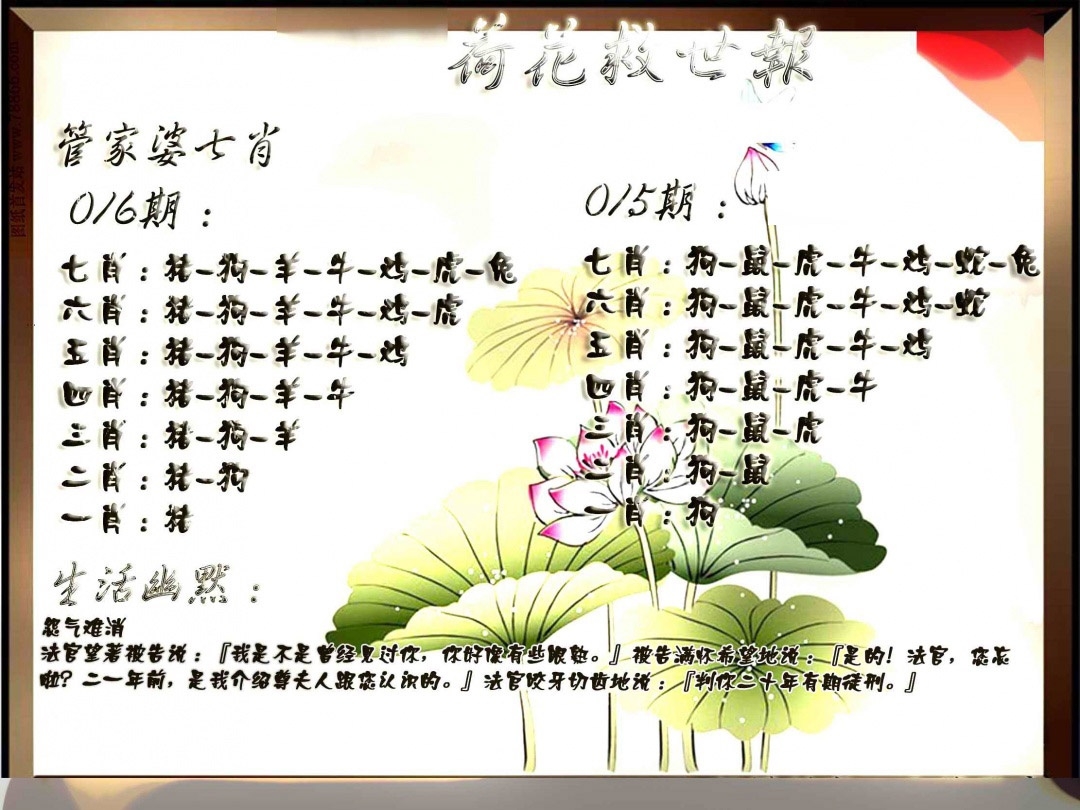 荷花救世報
管家婆七肖
016期：
七肖：猪-狗-羊-牛-鸡-虎-兔
六肖：猪-狗-羊-牛-鸡-虎
五肖：猪-狗-羊-牛-鸡
四肖：猪-狗-羊-牛
三肖：猪-狗-羊
二肖：猪-狗
一肖：猪
015期：
七肖：狗-鼠-虎-牛-鸡-蛇-兔
六肖：狗-鼠-虎-牛-鸡-蛇
五肖：狗-鼠-虎-牛-鸡
四肖：狗-鼠-虎-牛
三肖：狗-鼠-虎
二肖：狗-鼠
一肖：狗
生活幽默：
怨气难消
法官望著被告说：『我是不是曾经见过你，你好像有些眼熟。』被告满怀希望地说：『是的！法官，您忘
啦？二一年前，是我介绍尊夫人跟您认识的。』法官咬牙切齿地说：『判你二十年有期徒刑。』